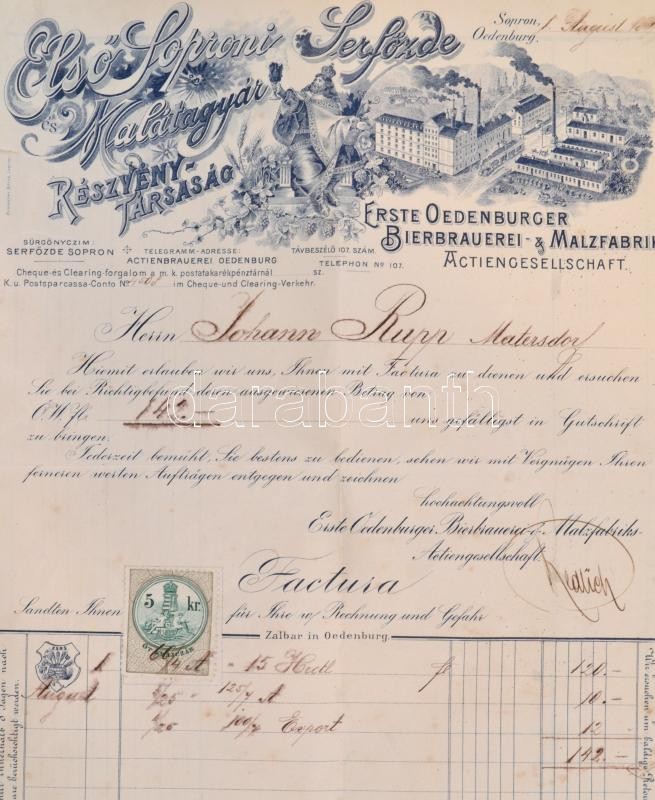 Első Soproni Serfőzde
és Malátagyár
Részvény-
Társaság
Sopron,
Oedenburg, 1. August
Erste Oedenburger
Bierbrauerei- & Malzfabrik
Actiengesellschaft.
SÜRGÖNYCZIM:
SERFŐZDE SOPRON
TELEGRAMM-ADRESSE:
ACTIENBRAUEREI OEDENBURG
TÁVBESZÉLŐ 107. SZÁM.
TELEPHON No 107.
Cheque-és Clearing-forgalom a m. k. postatakarékpénztárnál sz.
K. u. Postsparcassa-Conto No im Cheque-und Clearing-Verkehr.
Herrn Johann Rupp Matersdorf
Hiemit erlauben wir uns, Ihnen mit Factura zu dienen und ersuchen
Sie bei Richtigbefund deren ausgewiesenen Betrag von
Ö.W.fl. 142.- uns gefälligst in Gutschrift
zu bringen.
Jederzeit bemüht, Sie bestens zu bedienen, sehen wir mit Vergnügen Ihren
ferneren werten Aufträgen entgegen und zeichnen
hochachtungsvoll
Erste Oedenburger Bierbrauerei-& Malzfabriks-
Actiengesellschaft.
Redlich
darabanth
Factura
Sandten Ihnen für Ihre w/ Rechnung und Gefahr
Zalbar in Oedenburg.
5 kr.
ÖT KRAJCZÁR
1 15 Hectl fl 120.-
August 6/25 125/7 A 10.-
6/25 100/7 Export 12
142.-